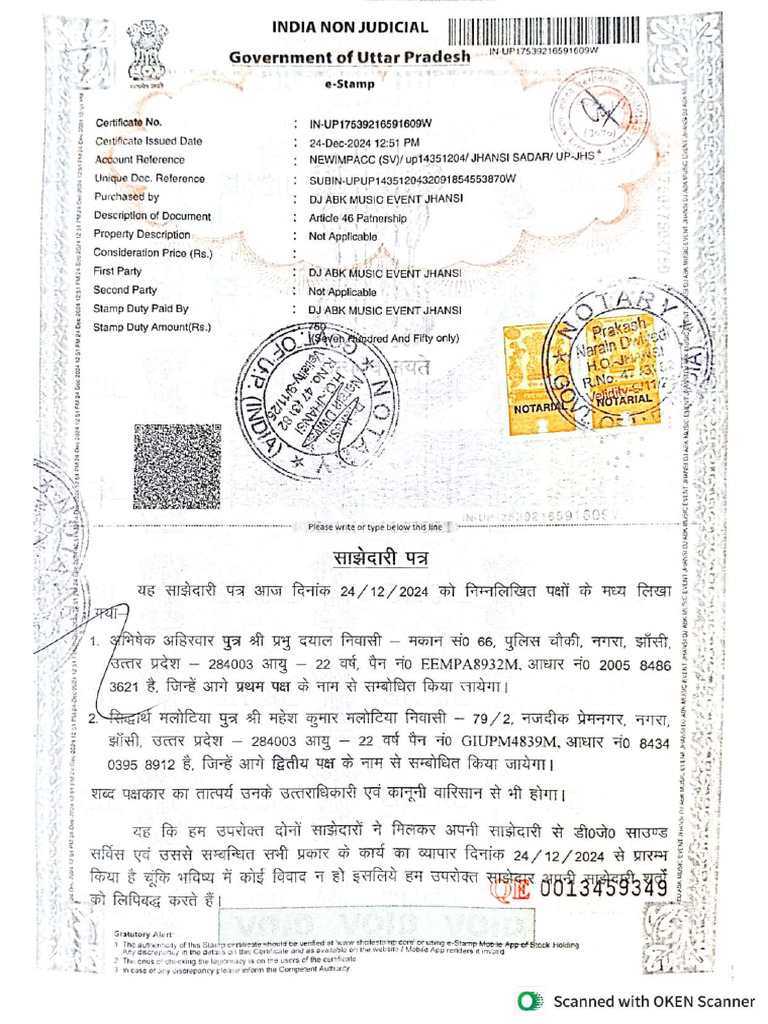 INDIA NON JUDICIAL
IN-UP17539216591609W
Government of Uttar Pradesh
e-Stamp
Certificate No. : IN-UP17539216591609W
Certificate Issued Date : 24-Dec-2024 12:51 PM
Account Reference : NEWIMPACC (SV)/ up14351204/ JHANSI SADAR/ UP-JHS
Unique Doc. Reference : SUBIN-UPUP1435120432091854553870W
Purchased by : DJ ABK MUSIC EVENT JHANSI
Description of Document : Article 46 Patnership
Property Description : Not Applicable
Consideration Price (Rs.) :
First Party : DJ ABK MUSIC EVENT JHANSI
Second Party : Not Applicable
Stamp Duty Paid By : DJ ABK MUSIC EVENT JHANSI
Stamp Duty Amount(Rs.) : 750
(Seven Hundred And Fifty only)
NOTARY
Prakash
Narain Dwivedi
H.O.-JHANSI
NOTARIAL
NOTARIAL
NOTARY
GOVT. OF U.P. (INDIA)
H.O.-JHANSI
Velidity-9/11/25
IN-UP17539216591609W
Please write or type below this line
साझेदारी पत्र
यह साझेदारी पत्र आज दिनांक 24/12/2024 को निम्नलिखित पक्षों के मध्य लिखा
गया–
1. अभिषेक अहिरवार पुत्र श्री प्रभु दयाल निवासी – मकान सं0 66, पुलिस चौकी, नगरा, झाँसी,
उत्तर प्रदेश – 284003 आयु – 22 वर्ष, पैन नं0 EEMPA8932M, आधार नं0 2005 8486
3621 है, जिन्हें आगे प्रथम पक्ष के नाम से सम्बोधित किया जायेगा।
2. सिद्धार्थ मलोटिया पुत्र श्री महेश कुमार मलोटिया निवासी – 79/2, नजदीक प्रेमनगर, नगरा,
झाँसी, उत्तर प्रदेश – 284003 आयु – 22 वर्ष पैन नं0 GIUPM4839M, आधार नं0 8434
0395 8912 है, जिन्हें आगे द्वितीय पक्ष के नाम से सम्बोधित किया जायेगा।
शब्द पक्षकार का तात्पर्य उनके उत्तराधिकारी एवं कानूनी वारिसान से भी होगा।
यह कि हम उपरोक्त दोनों साझेदारों ने मिलकर अपनी साझेदारी से डी0जे0 साउण्ड
सर्विस एवं उससे सम्बन्धित सभी प्रकार के कार्य का व्यापार दिनांक 24/12/2024 से प्रारम्भ
किया है चूंकि भविष्य में कोई विवाद न हो इसलिये हम उपरोक्त साझेदार अपनी साझेदारी शर्तों
QE 0013459349
को लिपिबद्ध करते हैं।
Statutory Alert:
1 The authenticity of this Stamp certificate should be verified at 'www.shcilestamp.com' or using e-Stamp Mobile App of Stock Holding
Any discrepancy in the details on this Certificate and as available on the website / Mobile App renders it invalid
2 The onus of checking the legitimacy is on the users of the certificate
3 In case of any discrepancy please inform the Competent Authority
1
Scanned with OKEN Scanner